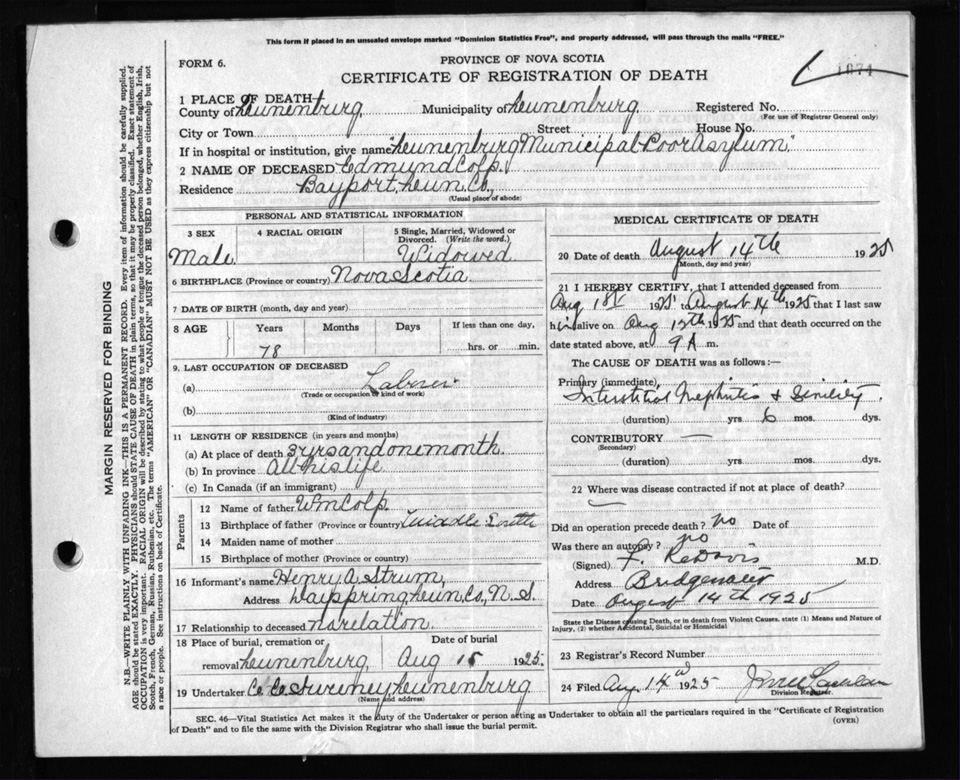 This form if placed in an unsealed envelope marked "Dominion Statistics Free", and properly addressed, will pass through the mails "FREE."
FORM 6.
PROVINCE OF NOVA SCOTIA
CERTIFICATE OF REGISTRATION OF DEATH
1874
1 PLACE OF DEATH
County of Lunenburg, Municipality of Lunenburg Registered No.
(For use of Registrar General only)
City or Town Street House No.
If in hospital or institution, give name "Lunenburg Municipal Poor Asylum"
2 NAME OF DECEASED Edmund Colp.
Residence Bayport, Lun. Co.,
(Usual place of abode)
PERSONAL AND STATISTICAL INFORMATION
3 SEX 4 RACIAL ORIGIN 5 Single, Married, Widowed or Divorced. (Write the word.)
Male. Widowed
6 BIRTHPLACE (Province or country) Nova Scotia
7 DATE OF BIRTH (month, day and year)
8 AGE Years Months Days If less than one day,
78 hrs. or min.
9. LAST OCCUPATION OF DECEASED
(a) Laborer
(Trade or occupation or kind of work)
(b)
(Kind of industry)
11 LENGTH OF RESIDENCE (in years and months)
(a) At place of death 3 yrs and one month.
(b) In province All his life
(c) In Canada (if an immigrant)
Parents
12 Name of father Wm Colp.
13 Birthplace of father (Province or country)
14 Maiden name of mother
15 Birthplace of mother (Province or country)
16 Informant's name Henry A. Strum,
Address Dayspring, Lun. Co., N. S.
17 Relationship to deceased no relation.
18 Place of burial, cremation or removal Lunenburg, Date of burial Aug 15 1925.
19 Undertaker Sweeney, Lunenburg
(Name and address)
MEDICAL CERTIFICATE OF DEATH
20 Date of death August 14th 1925
(Month, day and year)
21 I HEREBY CERTIFY, that I attended deceased from
Aug 1st 1925 to August 14th 1925 that I last saw
him alive on Aug 12th 1925 and that death occurred on the
date stated above, at 9 A. m.
The CAUSE OF DEATH was as follows:—
Primary (immediate),
Interstitial Nephritis & Senility
(duration) yrs 6 mos. dys.
CONTRIBUTORY —
(Secondary)
(duration) yrs. mos. dys.
22 Where was disease contracted if not at place of death?
Did an operation precede death? no Date of
Was there an autopsy? no
(Signed) F. Davis M.D.
Address Bridgewater
Date August 14th 1925
State the Disease causing Death, or in death from Violent Causes. state (1) Means and Nature of
Injury, (2) whether Accidental, Suicidal or Homicidal
23 Registrar's Record Number
24 Filed Aug. 14 1925
Division Registrar.
SEC. 46—Vital Statistics Act makes it the duty of the Undertaker or person acting as Undertaker to obtain all the particulars required in the "Certificate of Registration
of Death" and to file the same with the Division Registrar who shall issue the burial permit.
(OVER)
MARGIN RESERVED FOR BINDING
N.B.—WRITE PLAINLY WITH UNFADING INK—THIS IS A PERMANENT RECORD. Every item of information should be carefully supplied.
AGE should be stated EXACTLY. PHYSICIANS should STATE CAUSE OF DEATH in plain terms, so that it may be properly classified. Exact statement of
OCCUPATION is very important. RACIAL ORIGIN will be described by stating to what people or tongue the deceased person belonged, whether English, Irish,
Scotch, French, German, Russian, Ruthenian, etc. The terms "AMERICAN" OR "CANADIAN" MUST NOT BE USED as they express citizenship but not
a race or people. See instructions on back of Certificate.